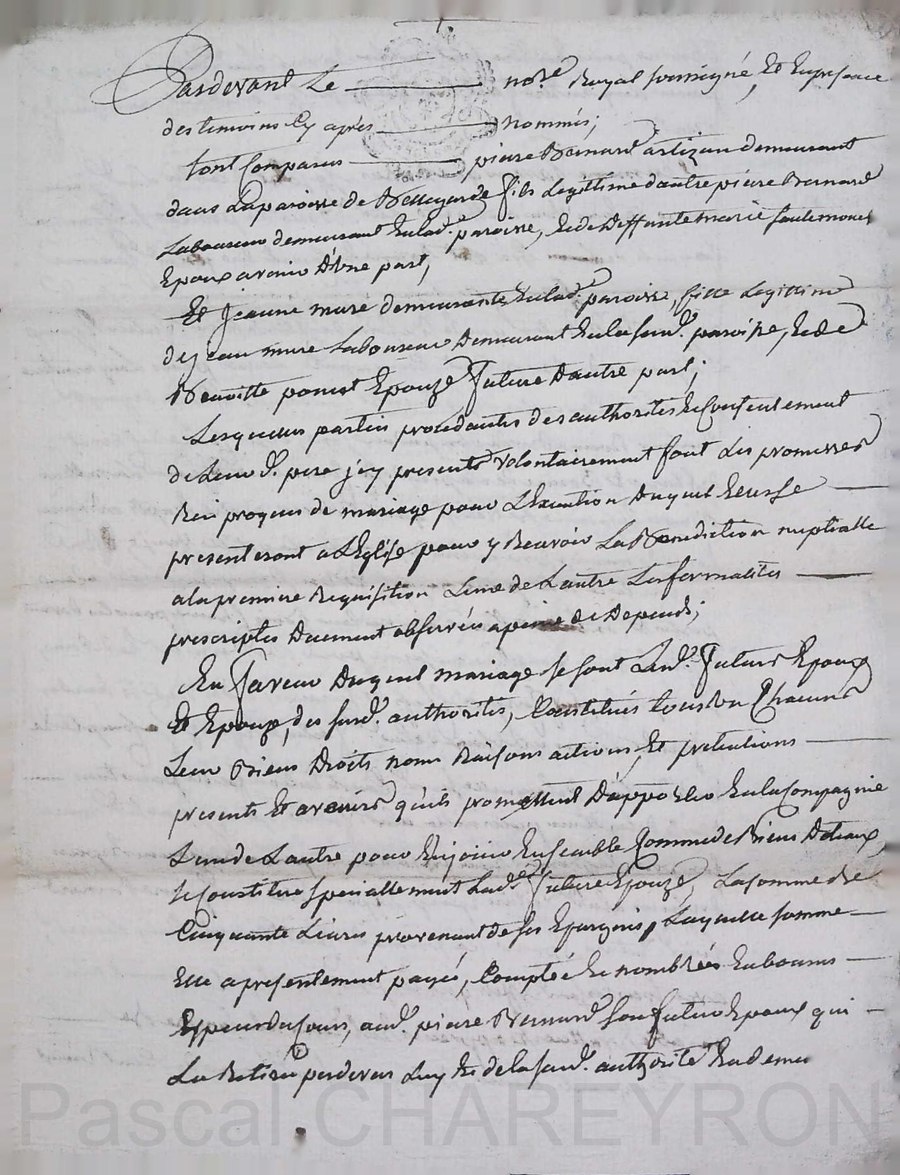 1.
Pardevant Le nore Royal soussigné, Et En presence
des temoins Cy apres nommés;
sont Comparus pierre Bernard artizan demeurant
dans La paroisse de Bellegarde fils Legittime d'autre pierre Bernard
Laboureur demeurant En lad. paroisse, Et de Deffunte marie
Epoux avenir D'Une part,
Et Jeanne mure demeurante En lad. paroisse, fille Legittime
de jean mure Laboureur Demeurant En la susd. paroisse, Et de
Benoitte poncet Epouze future D'autre part;
Lesquelles parties procedantes des authorités Et Consentement
de Leur d. pere jcy presents volontairement font Les promesses
Reciproques de mariage pour L'Exécution Duquel
presenteront a L'Eglise pour y Recevoir La Benediction nuptialle
a la premiere Requisition L'une de L'autre Les formalités
prescriptes Duement observées a peine de Depends;
En faveur Duquel mariage se sont Lesd. futurs Epoux
Et Epouze, des susd. authorités, Constitués tous Un Chacun
Leur Biens Droits noms Raisons actions, Et pretentions
presents Et avenirs qu'ils promettent D'apporter En la Compagnie
L'un de L'autre pour En jouir Ensemble Comme de Biens Dotaux,
se Constitue speciallement Lad. future Epouze, La somme de
Cinquante Livres provenant de ses Epargnes, Laquelle somme
Elle a presentement payée, Comptée Et nombrée En bonnes
Especes du Cours, aud. pierre Bernard son futur Epoux qui
La Retire pardevers Luy Et de la susd. authorité En demeu
Pascal CHAREYRON